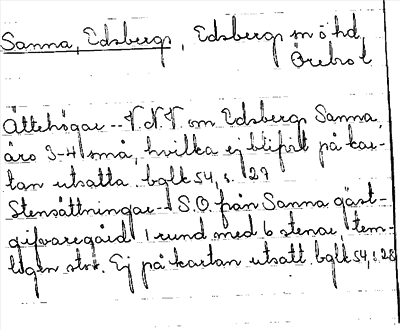 Sanna, Edsbergs, Edsbergs sn ö hd,
Örebro l
Ättehögar -- V.N.V. om Edsbergs Sanna,
äro 3-4 små, hvilka ej blifvit på kar-
tan utsatta. bglk 54, s. 27
Stensättningar - S.O. från Sanna gäst-
gifvaregård 1 rund med 6 stenar, tem-
ligen stor. Ej på kartan utsatt. bglk 54, s. 28